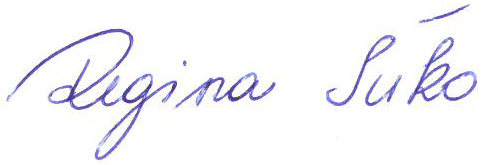 Regina Súko